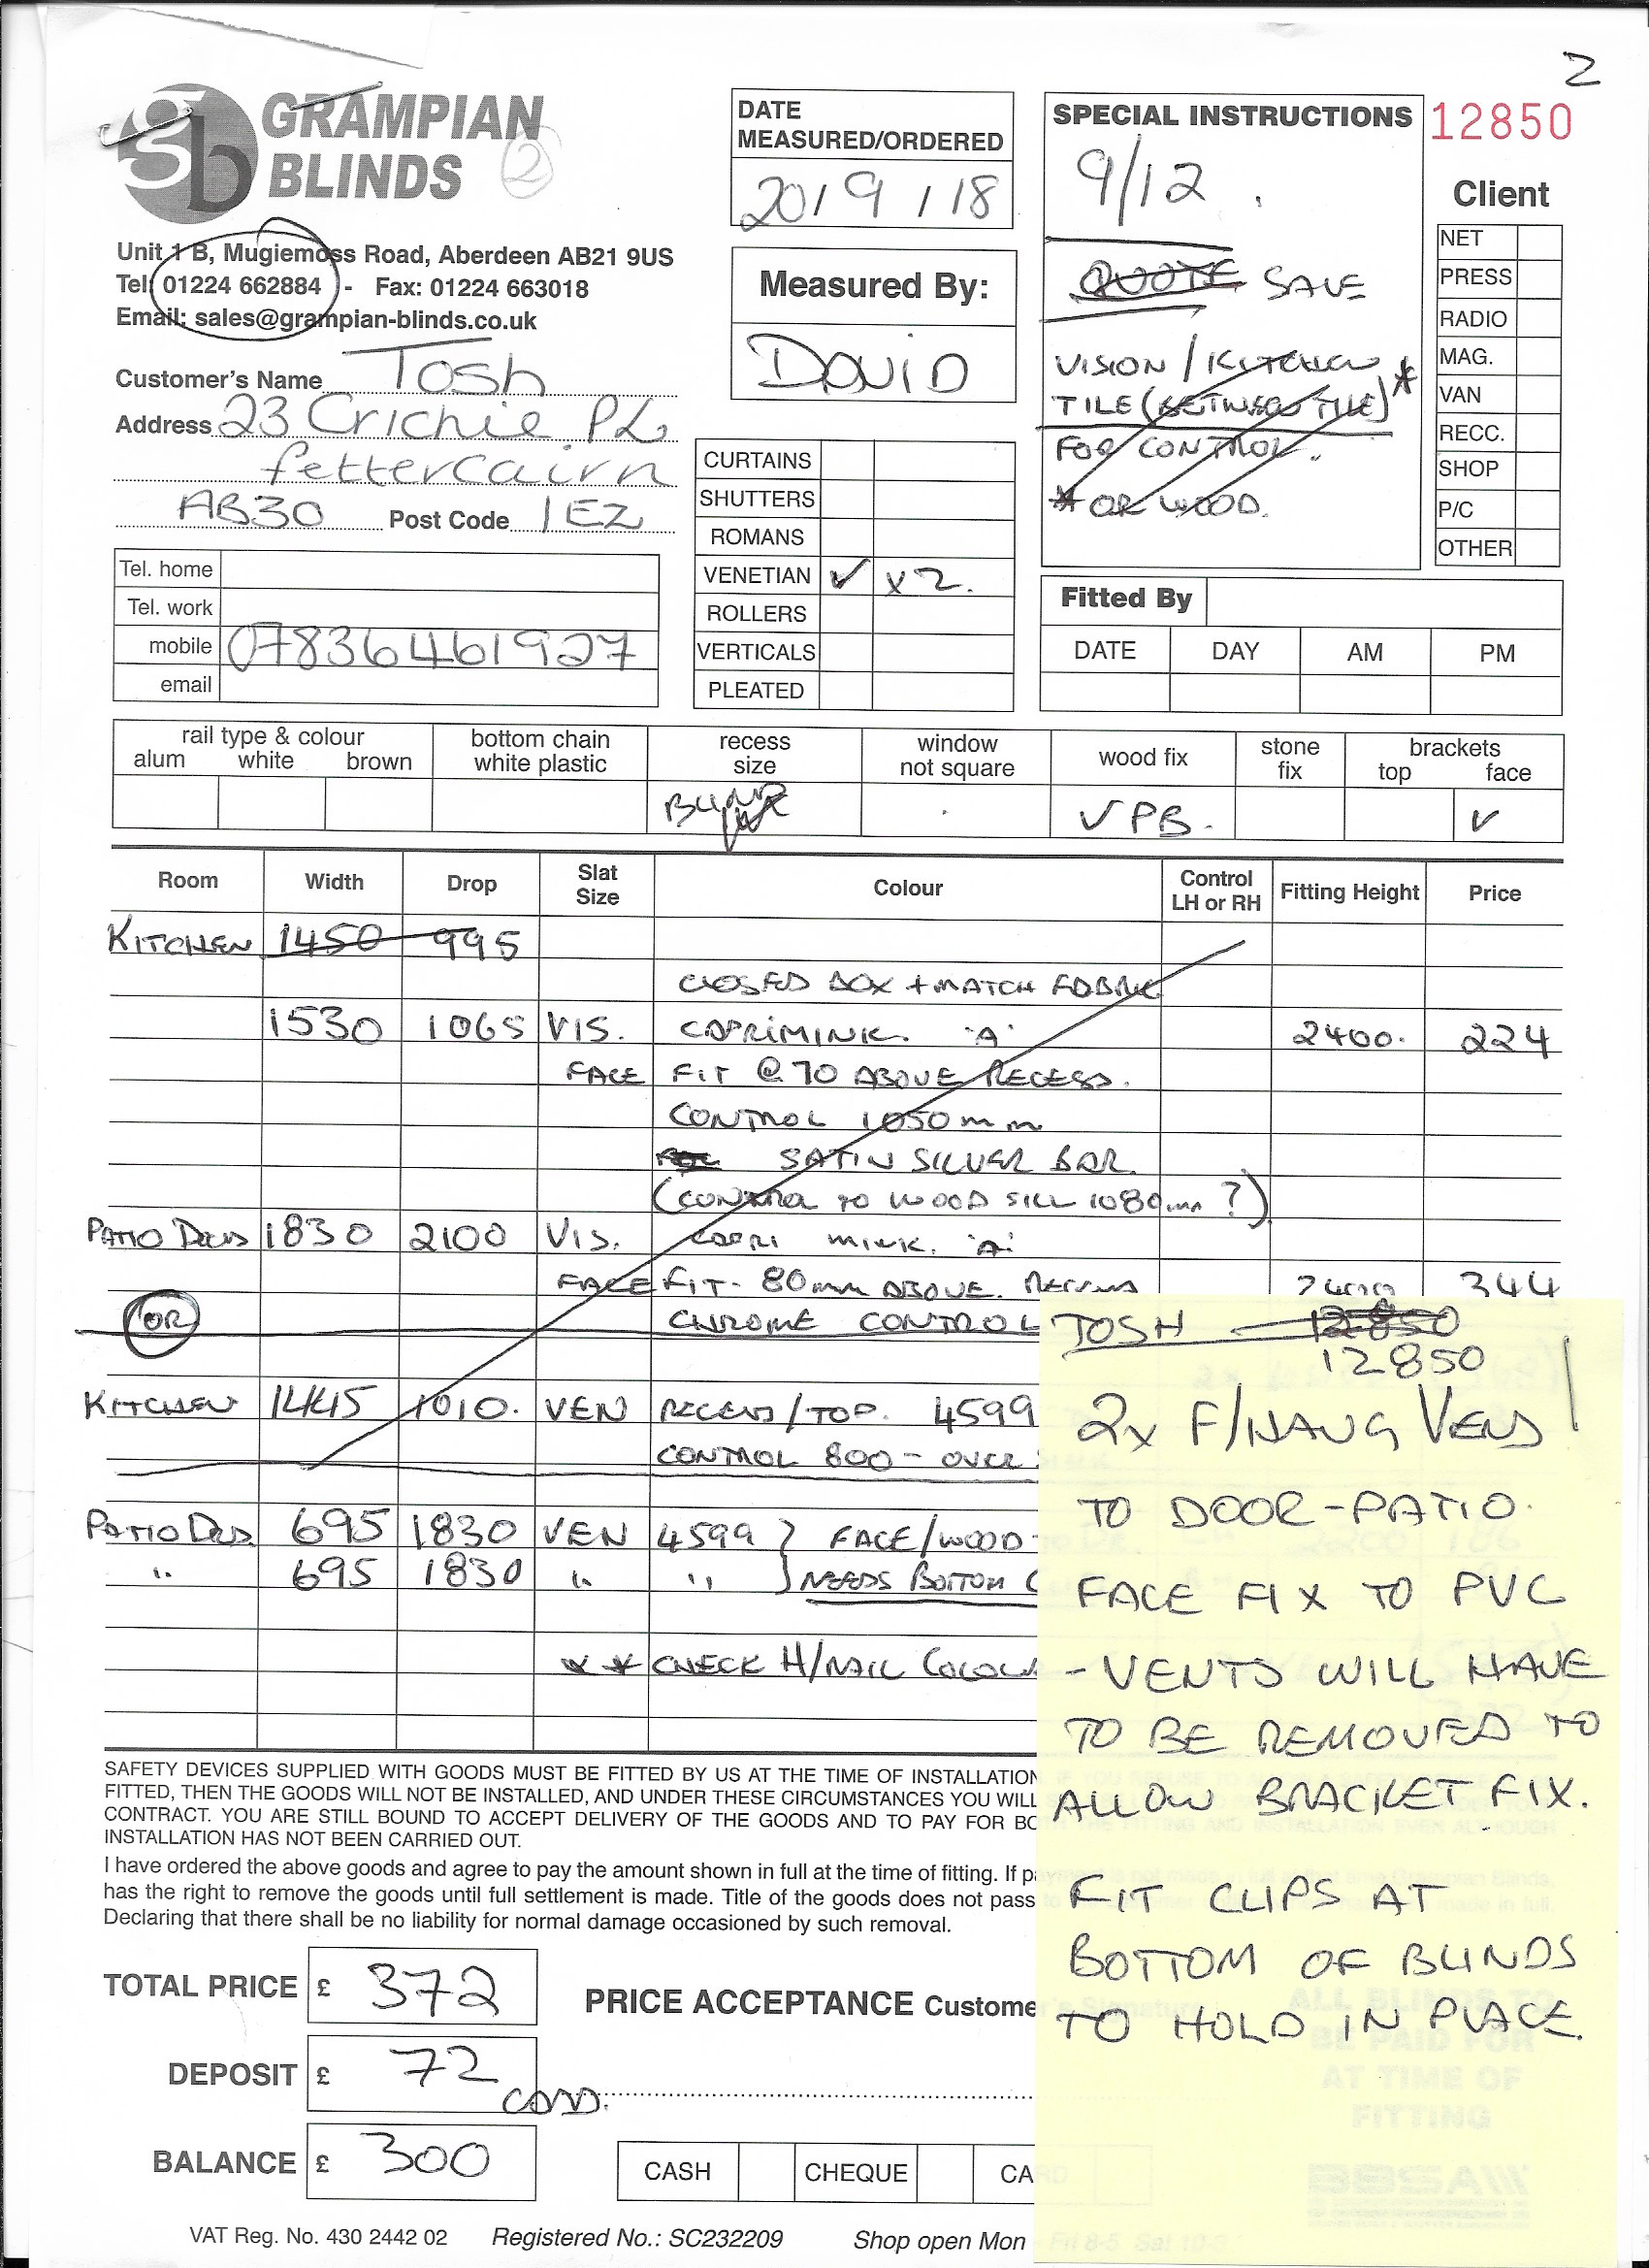 2
GRAMPIAN
BLINDS
2
gb
Unit 1 B, Mugiemoss Road, Aberdeen AB21 9US
Tel: 01224 662884 - Fax: 01224 663018
Email: sales@grampian-blinds.co.uk
Customer's Name Tosh
Address 23 Crichie PL
fettercairn
AB30 Post Code 1EZ
Tel. home
Tel. work
mobile 07836461927
email
DATE
MEASURED/ORDERED
20/9/18
Measured By:
DAVID
CURTAINS
SHUTTERS
ROMANS
VENETIAN ✓ x2.
ROLLERS
VERTICALS
PLEATED
SPECIAL INSTRUCTIONS
9/12
QUOTE SALE
VISION / KITCHEN *
TILE (BETWEEN TILE)
FOR CONTROL.
* OR WOOD.
12850
Client
NET
PRESS
RADIO
MAG.
VAN
RECC.
SHOP
P/C
OTHER
Fitted By
DATE DAY AM PM
rail type & colour
alum white brown
bottom chain
white plastic
recess
size
BLIND
window
not square
wood fix
✓ PB.
stone
fix
brackets
top face
✓
Room Width Drop Slat Size Colour Control LH or RH Fitting Height Price
KITCHEN 1450 995
CLOSED BOX + MATCH FABRIC
1530 1065 VIS. CAPRI MINK. 'A' 2400. 224
FACE FIT @ 70 ABOVE RECESS.
CONTROL 1050mm
SATIN SILVER BAR.
(CONTROL TO WOOD SILL 1080mm ?)
PATIO DOORS 1830 2100 VIS. CAPRI MINK. 'A'
FACE FIT - 80mm ABOVE. RECESS 344
OR CHROME CONTROL
KITCHEN 1445 1010. VEN RECESS/TOP. 4599
CONTROL 800 - OVER
PATIO DRS 695 1830 VEN 4599 } FACE/WOOD
" 695 1830 " " } NEEDS BOTTOM C
* * CHECK H/RAIL COLOU
TOSH - 12850
12850
2x F/HANG VENS
TO DOOR - PATIO.
FACE FIX TO PVC
- VENTS WILL HAVE
TO BE REMOVED TO
ALLOW BRACKET FIX.
FIT CLIPS AT
BOTTOM OF BLINDS
TO HOLD IN PLACE.
SAFETY DEVICES SUPPLIED WITH GOODS MUST BE FITTED BY US AT THE TIME OF INSTALLATION
FITTED, THEN THE GOODS WILL NOT BE INSTALLED, AND UNDER THESE CIRCUMSTANCES YOU WILL
CONTRACT. YOU ARE STILL BOUND TO ACCEPT DELIVERY OF THE GOODS AND TO PAY FOR BO
INSTALLATION HAS NOT BEEN CARRIED OUT.
I have ordered the above goods and agree to pay the amount shown in full at the time of fitting. If p
has the right to remove the goods until full settlement is made. Title of the goods does not pass
Declaring that there shall be no liability for normal damage occasioned by such removal.
TOTAL PRICE £ 372
PRICE ACCEPTANCE Custome
DEPOSIT £ 72 CARD.
BALANCE £ 300
CASH CHEQUE CARD
ALL BLINDS TO
BE PAID FOR
AT TIME OF
FITTING
VAT Reg. No. 430 2442 02 Registered No.: SC232209 Shop open Mon - Fri 8-5